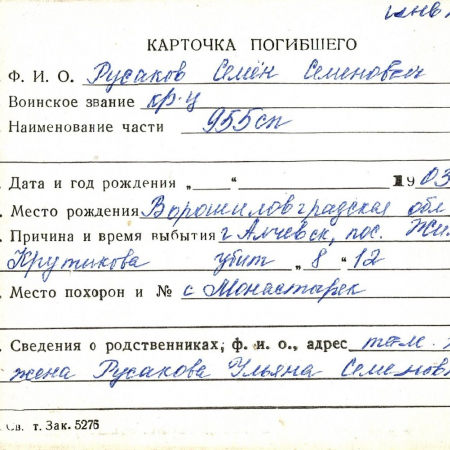 инв
КАРТОЧКА ПОГИБШЕГО
Ф. И. О. Русаков Семён Семенович
Воинское звание кр-ц
Наименование части 955сп
Дата и год рождения „ “ 1903
Место рождения Ворошиловградская обл
Причина и время выбытия г Алчевск, пос. Жил
Крутикова убит „ 8 “ 12
Место похорон и № с Монастарек
Сведения о родственниках, ф. и о., адрес там. ж
жена Русакова Ульяна Семеновн
Св. т. Зак. 5276